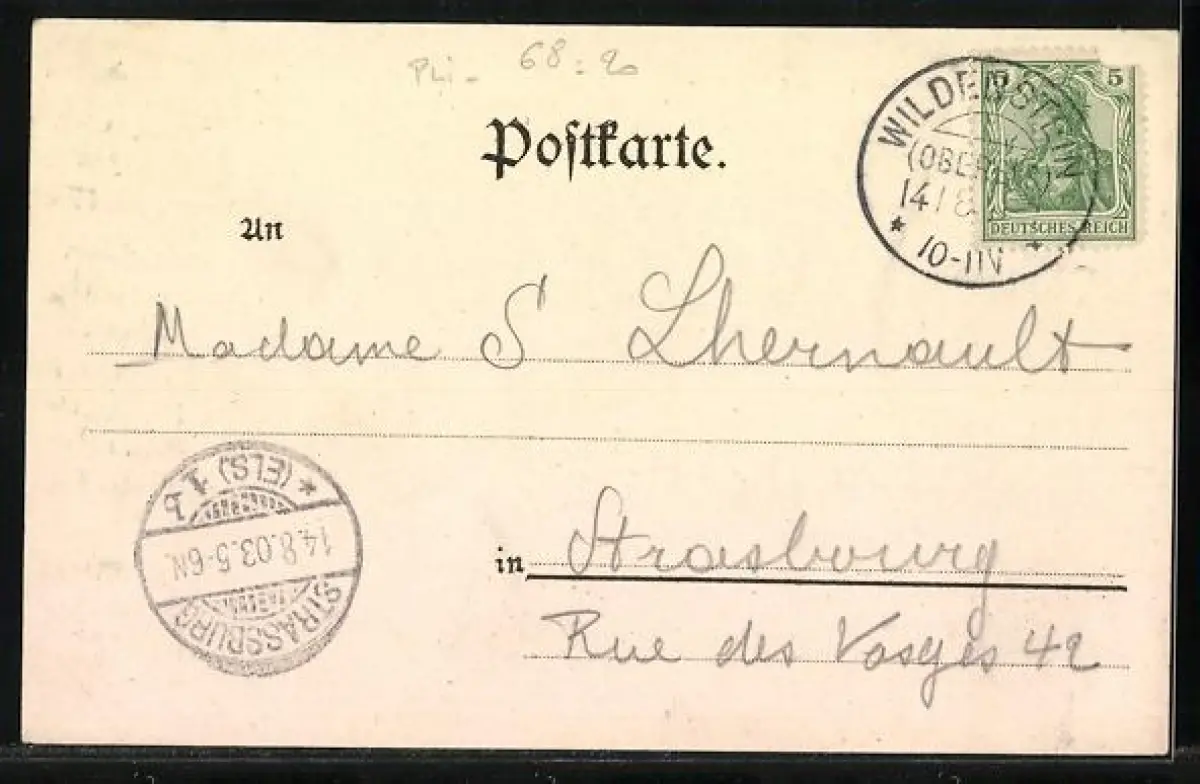 68 : 20
Postkarte.
WILDENSTEIN
14/8
10-11V
5
DEUTSCHES REICH
An
Madame S Lhernault
STRASSBURG
* (ELS) 1
14.8.03.5-6N.
in Strasbourg
Rue des Vosges 42